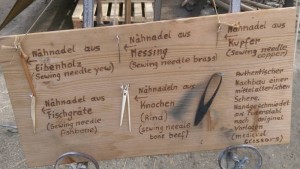 Nähnadel aus
Eibenholz
(Sewing needle yew)
Nähnadel aus
Messing
(Sewing needle brass)
Nähnadel aus
Kupfer
(Sewing needle copper)
Nähnadel aus
Fischgräte
(Sewing needle
fishbone)
Nähnadeln aus
Knochen
(Rind)
(sewing needle
bone beef)
Authentischer
Nachbau einer
mittelalterlichen
Schere.
Handgeschmiedet
aus Federstahl
nach original
Vorlagen
(medieval
scissors)